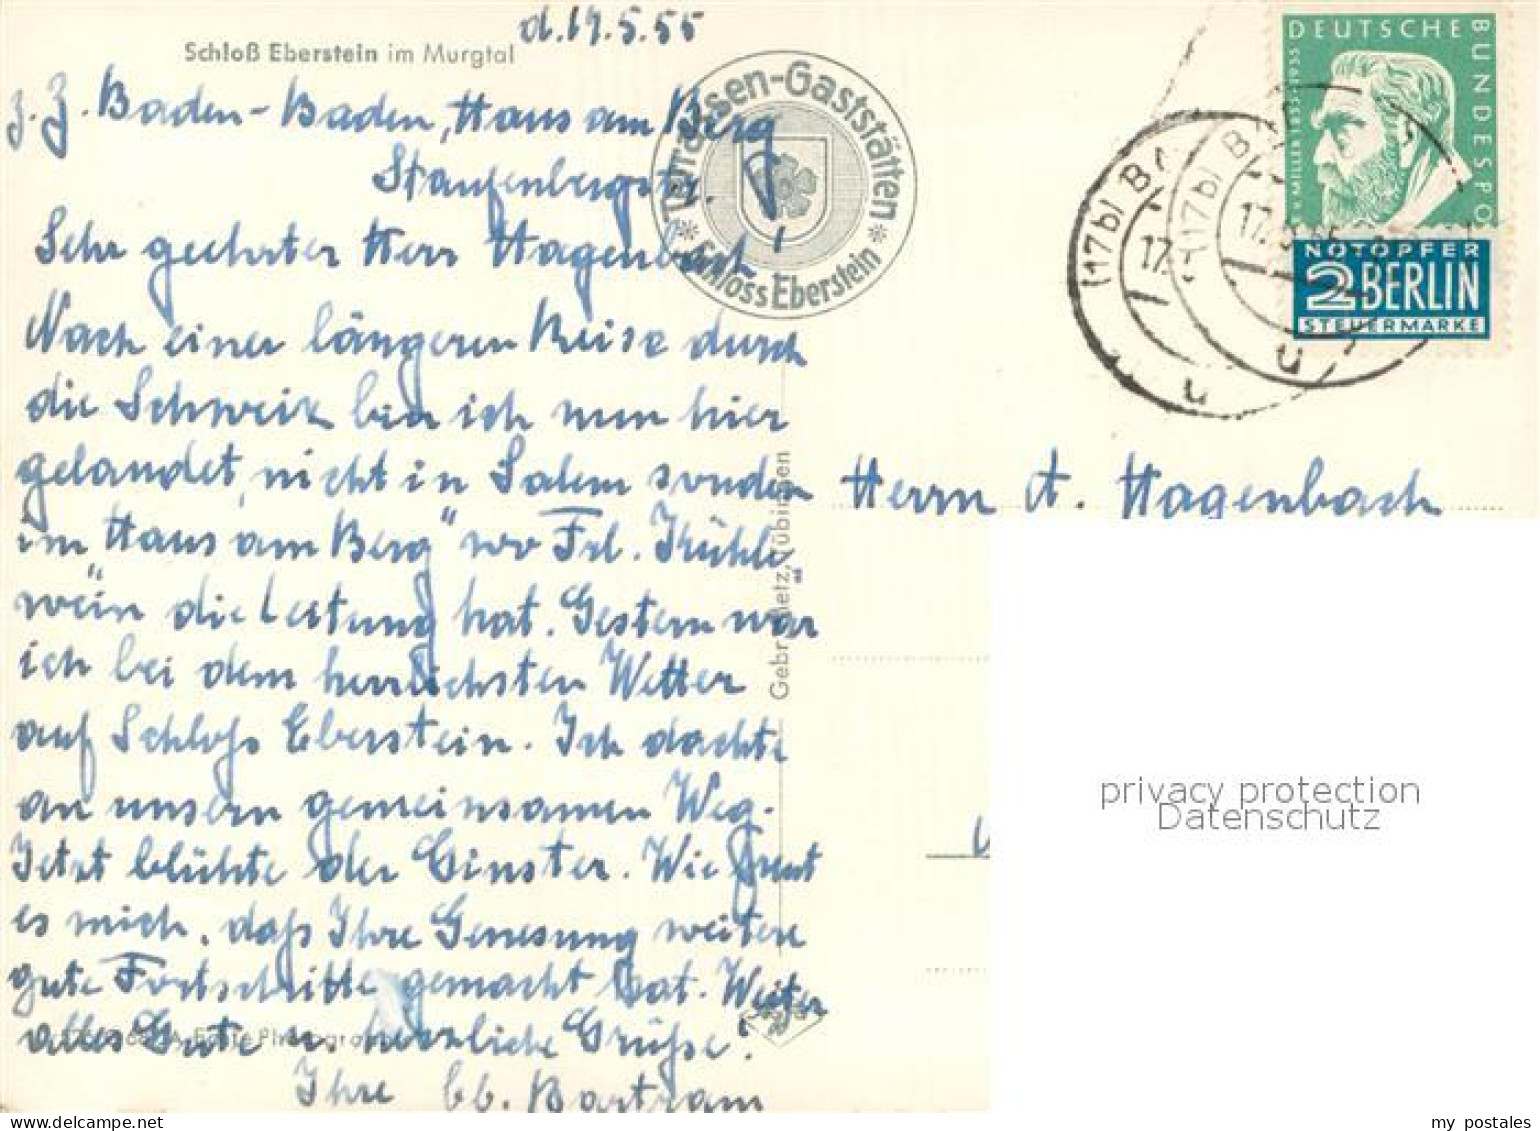 d. 17.5.55
Schloß Eberstein im Murgtal
z. Z. Baden-Baden, Haus am Berg
Staufenbergstr.
Sehr geehrter Herr Hagenbach!
Nach einer längeren Reise durch
die Schweiz bin ich nun hier
gelandet, nicht in Salem sondern
im "Haus am Berg" wo Frl. Kühle
wein die Leitung hat. Gestern war
ich bei dem herrlichsten Wetter
auf Schloß Eberstein. Ich dachte
an unsern gemeinsamen Weg.
Jetzt blühte der Ginster. Wie freut
es mich, daß Ihre Genesung weitere
gute Fortschritte gemacht hat. Weiter
alles Gute u. herzliche Grüße!
Ihre Bartram
Terrassen-Gaststätten
* Schloss Eberstein *
Gebr. Metz, Tübingen
DEUTSCHE BUNDESPO
MILLER 1855-1935
NOTOPFER
2 BERLIN
STEUERMARKE
(17b)
17.
(17b)
17.
Herrn A. Hagenbach
privacy protection
Datenschutz
my postales